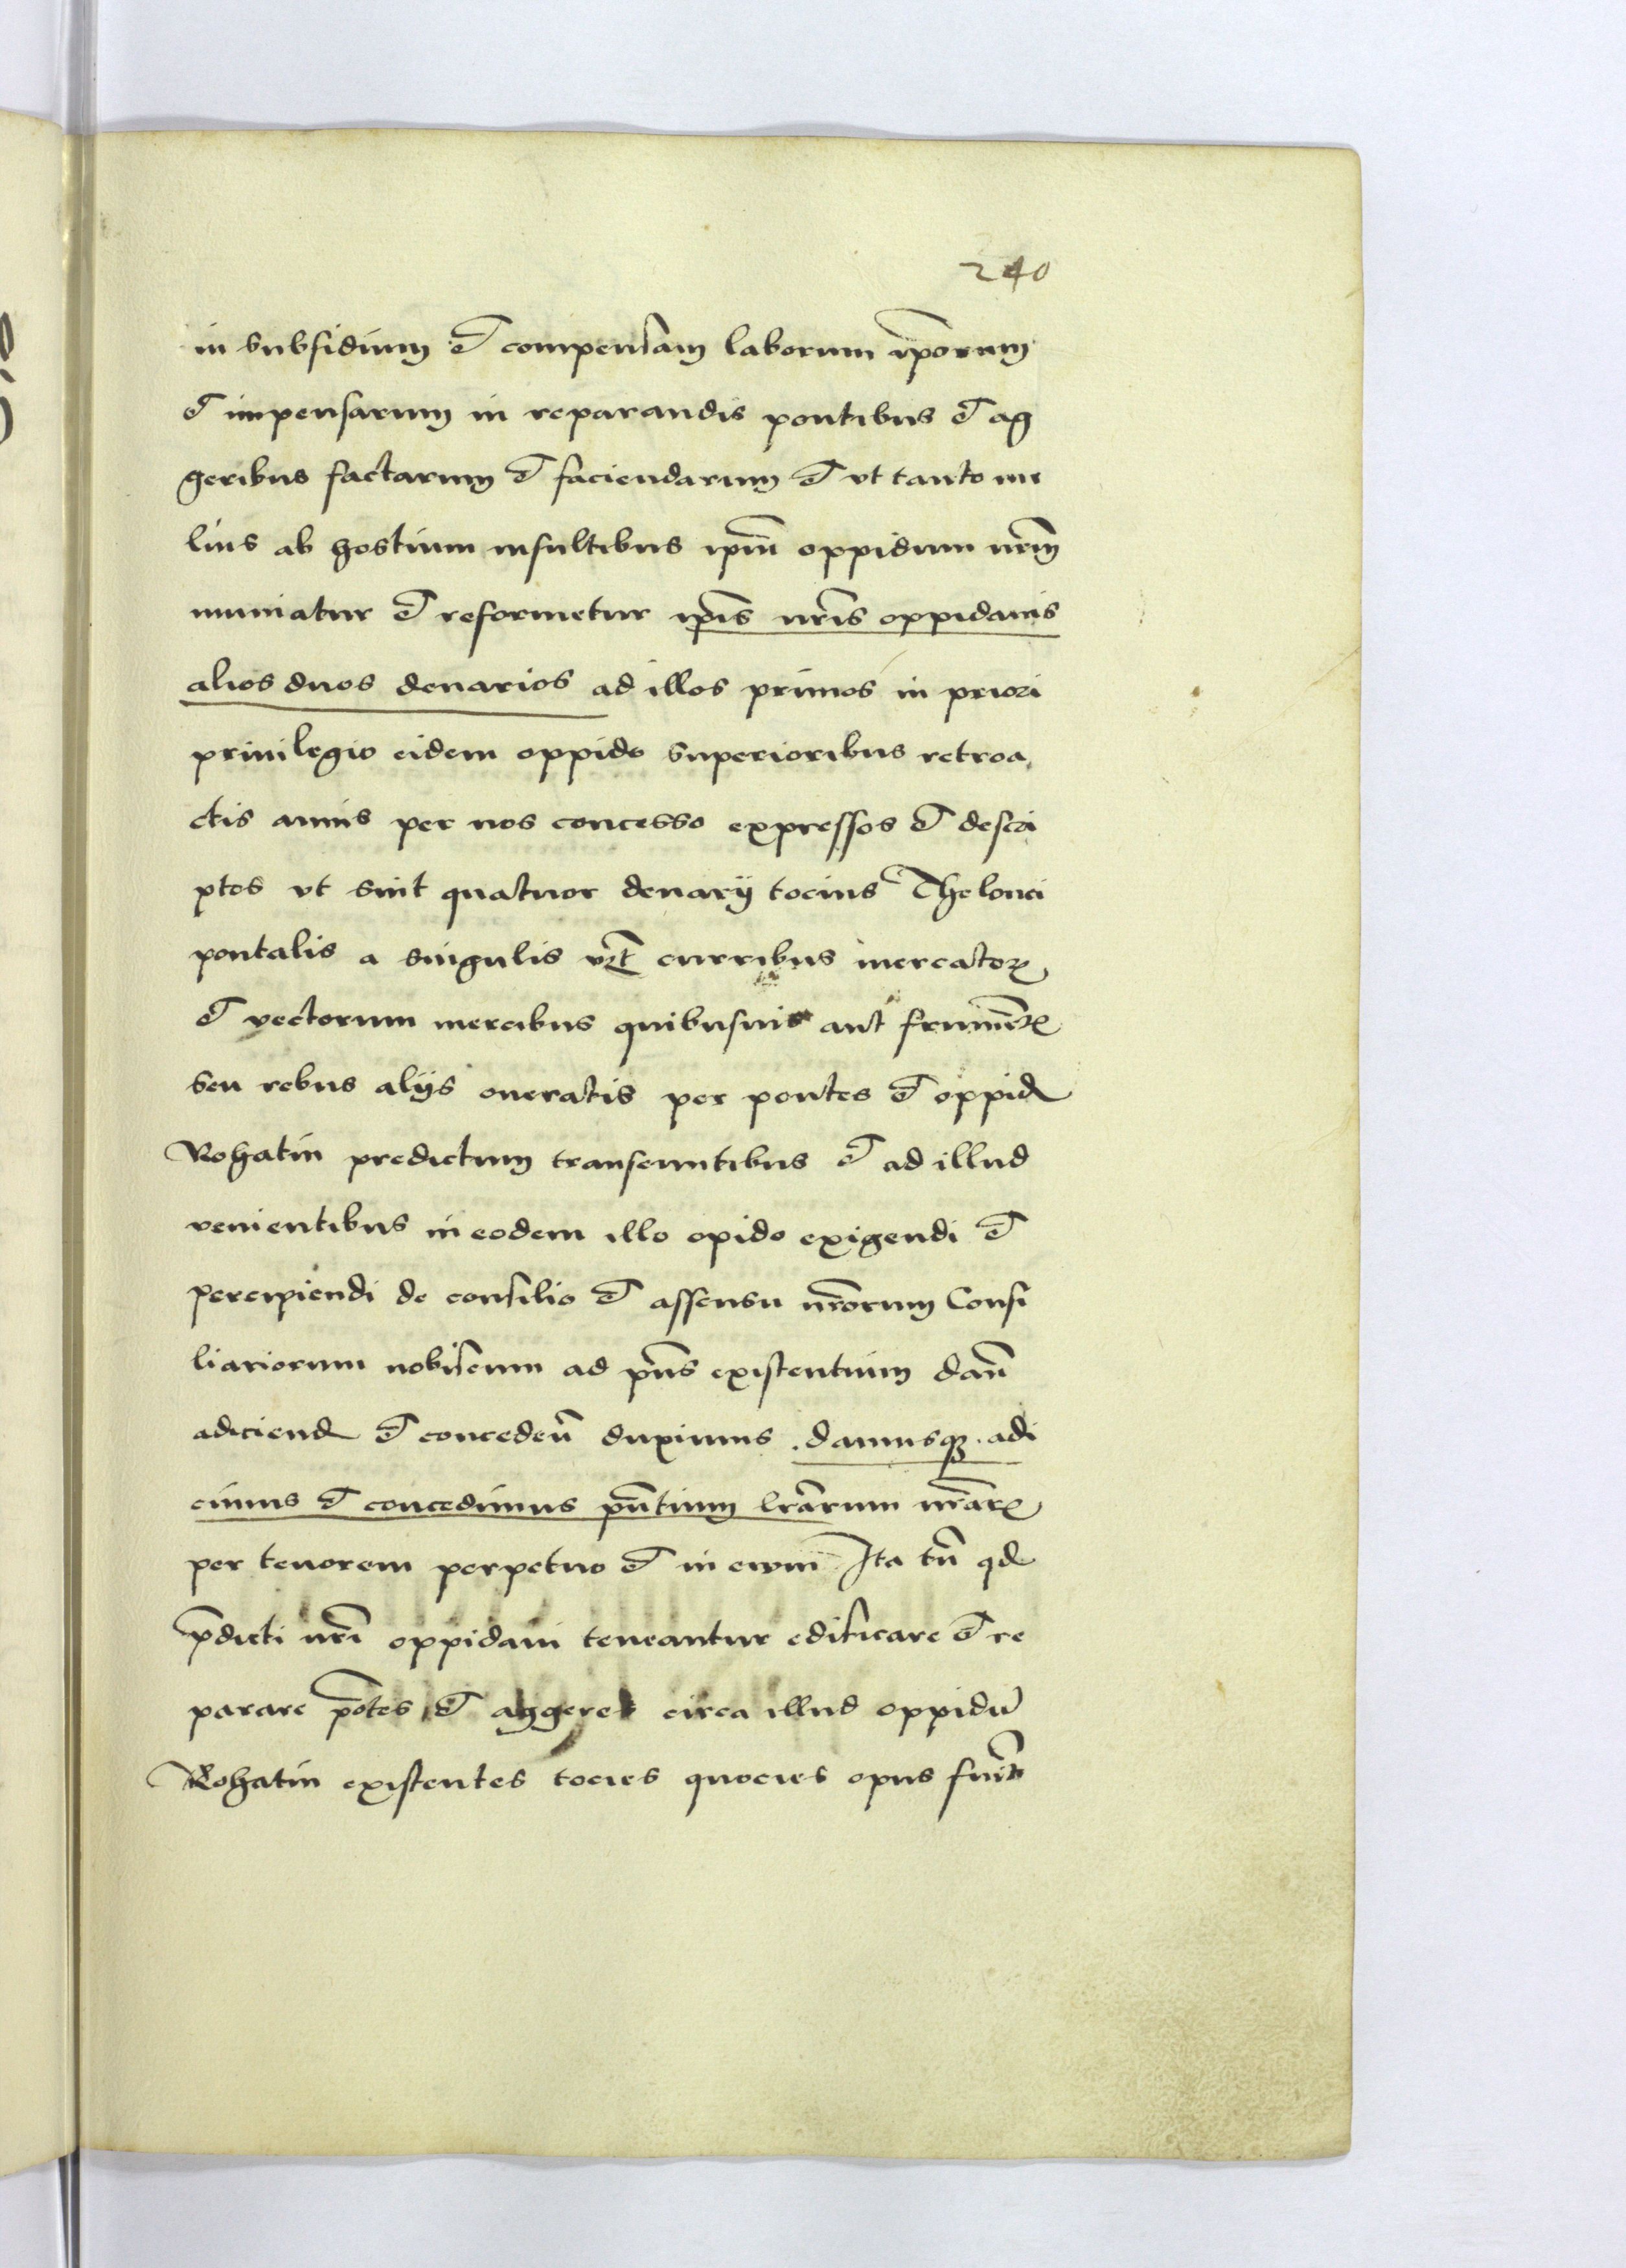 240
in subsidium et compensam laborum ip̄orum
et impensarum in reparandis pontibus et ag
geribus factarum et faciendarum et vt tanto me
lius ab hostium insultibus ip̄m oppidum nr̄m
muniatur et reformetur ip̄is nr̄is oppidanis
alios duos denarios ad illos primos in priori
priuilegio eidem oppido superioribus retroa
ctis annis per nos concesso expressos et descri
ptos vt sint quatuor denarij tocius Thelonei
pontalis a singulis vꝫt curribus mercatorꝝ
et vectorum mercibus quibusuis aut frumētꝝ
seu rebus alijs oneratis per pontes et oppid
Rohatin predictum transeuntibus et ad illud
venientibus in eodem illo opido exigendi et
percipiendi de consilio et assensu nr̄orum Consi
liariorum nobiscum ad pn̄s existentium dan̄
adiciend et conceden̄ duximus . damusqꝫ . adi
cimus et concedimus pn̄tium lr̄arum nr̄arꝝ
per tenorem perpetuo et in ewm Ita tn̄ qd
p̄dicti nr̄i oppidani teneantur edificare et re
parare pōtes et aggeres circa illud oppidū
Rohatin existentes tocies quocies opus fuīt